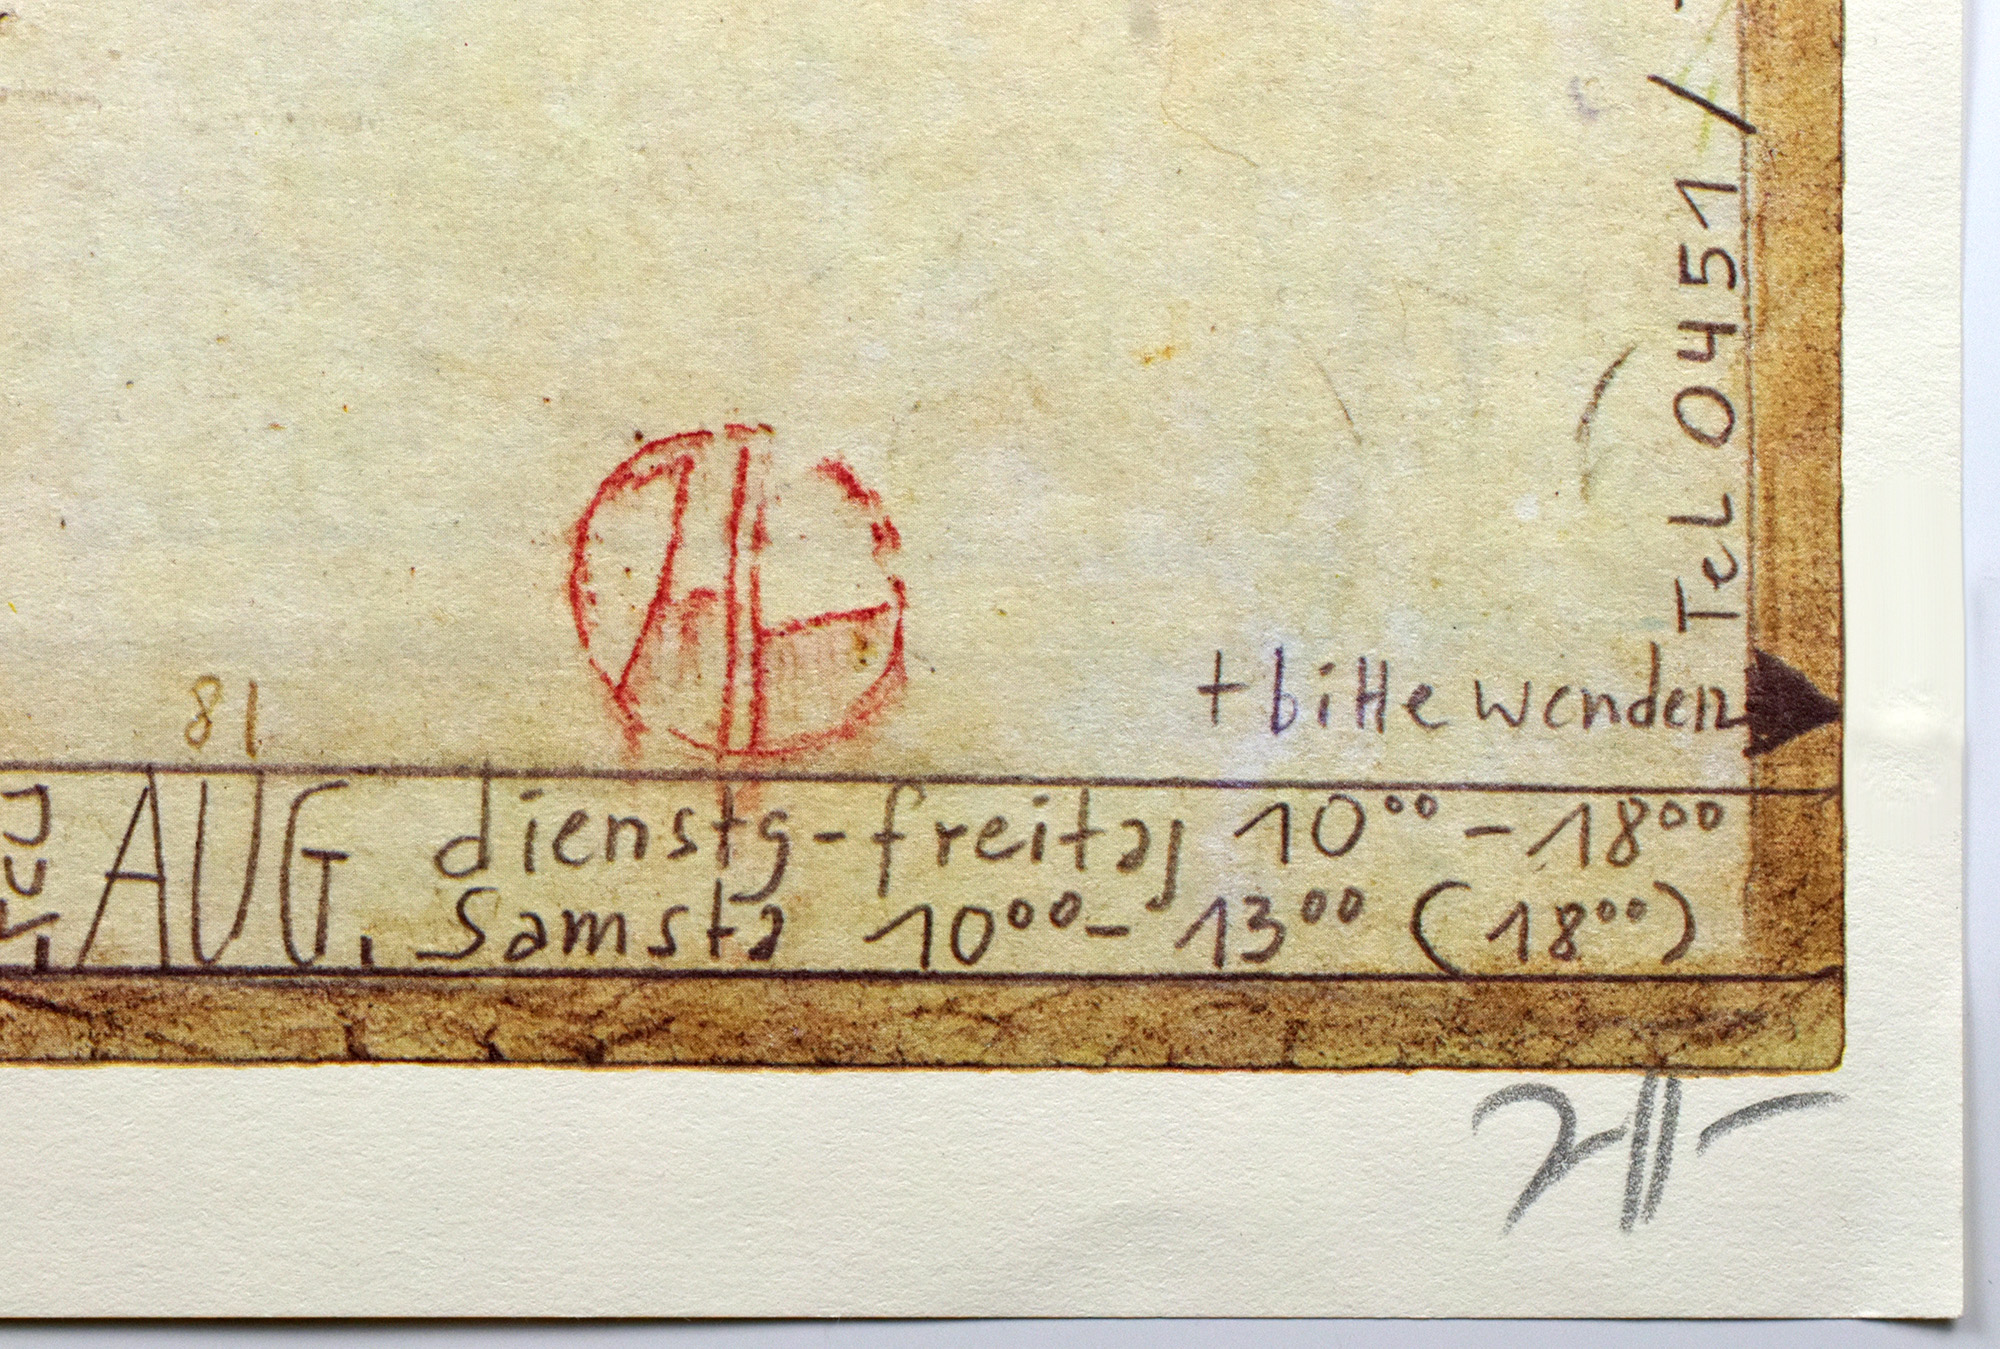 Tel 0451 /
+ bitte wenden
81
AUG. dienstg-freitag 10⁰⁰ - 18⁰⁰
Samsta 10⁰⁰ - 13⁰⁰ (18⁰⁰)